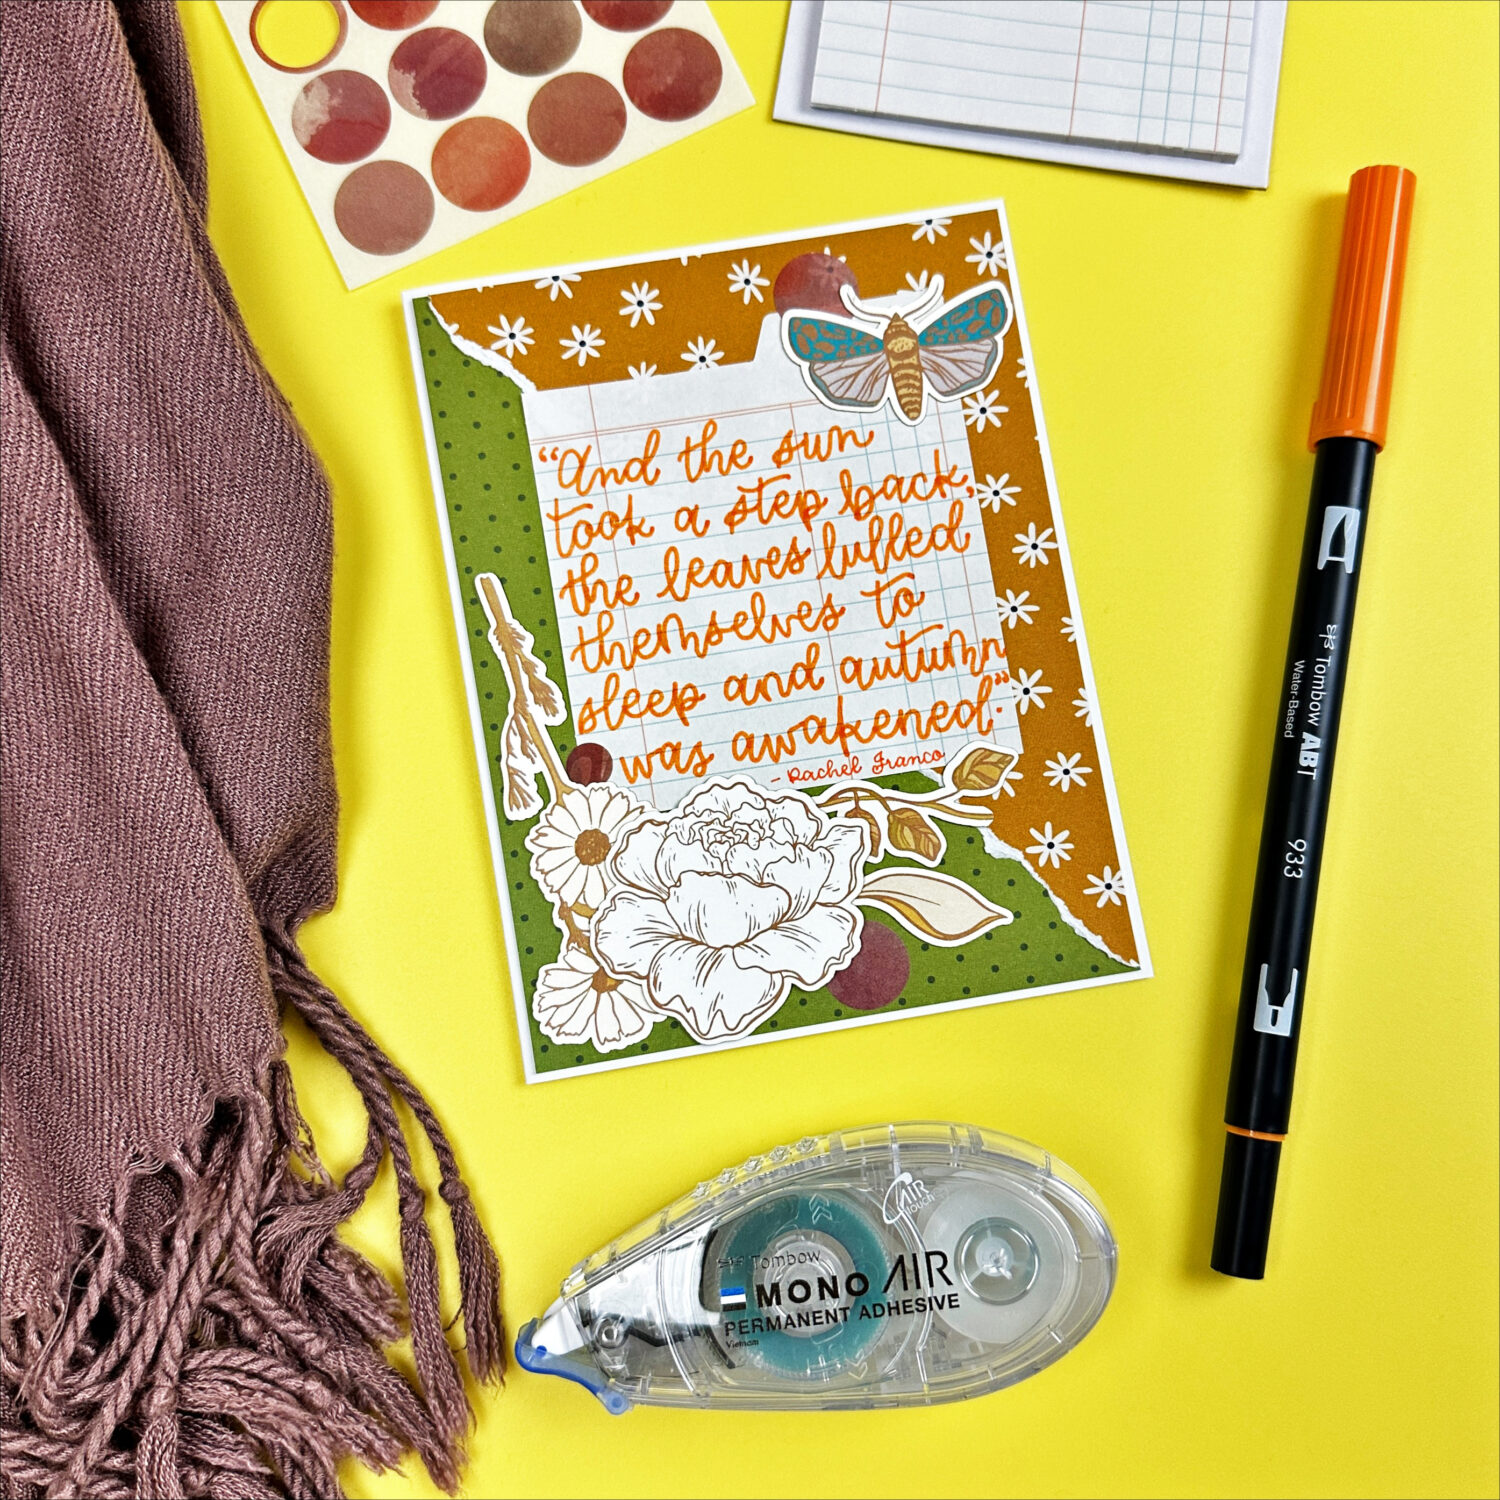 “And the sun
took a step back,
the leaves lulled
themselves to
sleep and autumn
was awakened.”
- Rachel Franco
Tombow ABT
Water-Based
933
AIR
touch
Tombow
MONO AIR
PERMANENT ADHESIVE
Vietnam